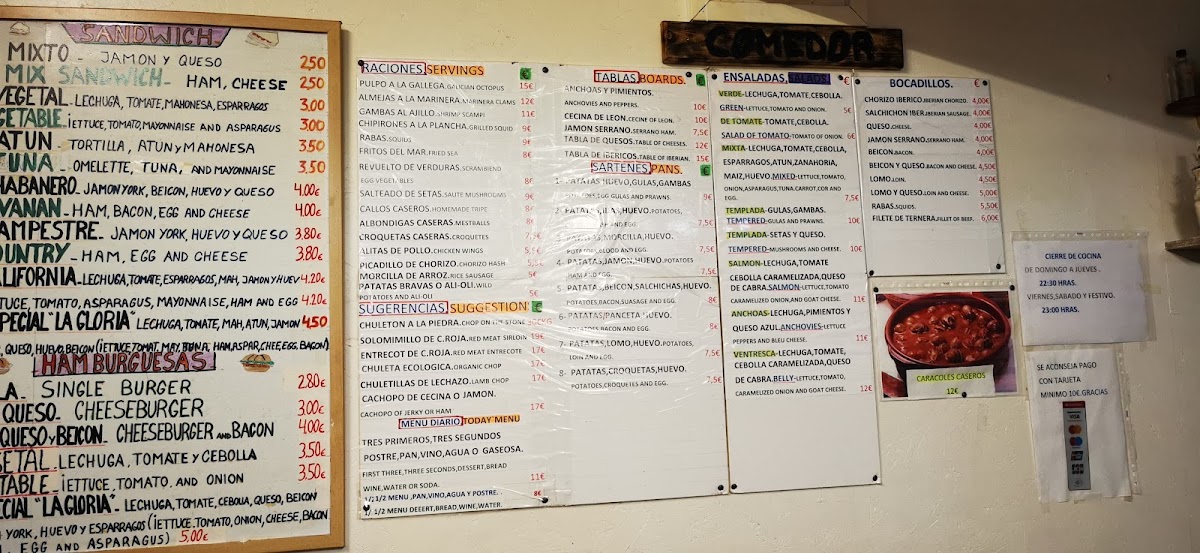 SANDWICH
MIXTO - JAMON Y QUESO 2,50
MIX SANDWICH - HAM, CHEESE 2,50
VEGETAL - LECHUGA, TOMATE, MAHONESA, ESPARRAGOS 3,00
GETABLE - lETTUCE, TOMATO, MAYONNAISE AND ASPARAGUS 3,00
ATUN - TORTILLA, ATUN Y MAHONESA 3,50
TUNA - OMELETTE, TUNA, AND MAYONNAISE 3,50
HABANERO - JAMON YORK, BEICON, HUEVO Y QUESO 4.00€
VANAN - HAM, BACON, EGG AND CHEESE 4.00€
AMPESTRE - JAMON YORK, HUEVO Y QUESO 3.80€
OUNTRY - HAM, EGG AND CHEESE 3.80€
ALIFORNIA - LECHUGA, TOMATE, ESPARRAGOS, MAH, JAMON Y HUEV 4.20€
TUCE, TOMATO, ASPARAGUS, MAYONNAISE, HAM AND EGG 4.20€
SPECIAL "LA GLORIA" LECHUGA, TOMATE, MAH, ATUN, JAMON 4,50
HAMBURGUESAS
LA SINGLE BURGER 2.80€
QUESO - CHEESEBURGER 3.00€
QUESO Y BEICON - CHEESEBURGER AND BACON 4.00€
GETAL - LECHUGA, TOMATE Y CEBOLLA 3.50€
TABLE - lETTUCE, TOMATO, AND ONION 3.50€
ECIAL "LA GLORIA" - LECHUGA, TOMATE, CEBOLLA, QUESO, BEICON
YORK, HUEVO Y ESPARRAGOS (lETTUCE, TOMATO, ONION, CHEESE, BACON
EGG AND ASPARAGUS) 5,00€
RACIONES, SERVINGS €
PULPO A LA GALLEGA. GALICIAN OCTOPUS 15€
ALMEJAS A LA MARINERA. MARINERA CLAMS 12€
GAMBAS AL AJILLO. SHRIMP SCAMPI 11€
CHIPIRONES A LA PLANCHA. GRILLED SQUID 9€
RABAS. SQUIDS 9€
FRITOS DEL MAR. FRIED SEA 8€
REVUELTO DE VERDURAS. SCRAMBLEND
EGG VEGETABLES 8€
SALTEADO DE SETAS. SAUTE MUSHROOMS 8€
CALLOS CASEROS. HOMEMADE TRIPE 8€
ALBONDIGAS CASERAS. MESTBALLS 8€
CROQUETAS CASERAS. CROQUETTES 7,5€
ALITAS DE POLLO. CHICKEN WINGS 5,5€
PICADILLO DE CHORIZO. CHORIZO HASH 5,5€
MORCILLA DE ARROZ. RICE SAUSAGE 5€
PATATAS BRAVAS O ALI-OLI. WILD
POTATOES AND ALI-OLI 5€
SUGERENCIAS, SUGGESTION' €
CHULETON A LA PIEDRA. CHOP ON THE STONE 30€KG
SOLOMIMILLO DE C.ROJA. RED MEAT SIRLOIN 19€
ENTRECOT DE C.ROJA. RED MEAT ENTRECOTE 17€
CHULETA ECOLOGICA. ORGANIC CHOP 17€
CHULETILLAS DE LECHAZO. LAMB CHOP 17€
CACHOPO DE CECINA O JAMON.
CACHOPO OF JERKY OR HAM 17€
MENU DIARIO, TODAY MENU
TRES PRIMEROS, TRES SEGUNDOS
POSTRE, PAN, VINO, AGUA O GASEOSA.
FIRST THREE, THREE SECONDS, DESSERT, BREAD
WINE, WATER OR SODA. 11€
1/2 MENU, PAN, VINO, AGUA Y POSTRE. 8€
1/2 MENU DEEERT, BREAD, WINE, WATER.
TABLAS, BOARDS. €
ANCHOAS Y PIMIENTOS.
ANCHOVIES AND PEPPERS. 10€
CECINA DE LEON. CECINE OF LEON. 10€
JAMON SERRANO. SERRANO HAM. 7,5€
TABLA DE QUESOS. TABLE OF CHEESES. 12€
TABLA DE IBERICOS. TABLE OF IBERIAN. 15€
SARTENES, PANS. €
1- PATATAS HUEVO, GULAS, GAMBAS
EGG GULAS AND PRAWNS. 9€
2- PATATAS, ILAS, HUEVO. POTATOES,
AND EGG. 7,5€
3- PATATAS, MORCILLA, HUEVO.
POTATOES, BLOOD AND EGG. 7,5€
4- PATATAS, JAMON, HUEVO. POTATOES
HAM AND EGG. 7,5€
5- PATATAS, BACON, SALCHICHAS, HUEVO.
POTATOES, BACON, SUASAGE AND EGG. 8€
6- PATATAS, PANCETA HUEVO.
POTATOES BACON AND EGG. 8€
7- PATATAS, LOMO, HUEVO. POTATOES,
LOIN AND EGG. 7,5€
8- PATATAS, CROQUETAS, HUEVO.
POTATOES, CROQUETES AND EGG. 7,5€
COMEDOR
ENSALADAS, €
VERDE-LECHUGA, TOMATE, CEBOLLA.
GREEN-LETTUCE, TOMATO AND ONION. 5€
DE TOMATE-TOMATE, CEBOLLA.
SALAD OF TOMATO-TOMATO OF ONION. 6€
MIXTA-LECHUGA, TOMATE, CEBOLLA,
ESPARRAGOS, ATUN, ZANAHORIA,
MAIZ, HUEVO. MIXED-LETTUCE, TOMATO,
ONION, ASPARAGUS, TUNA, CARROT, COR AND
EGG. 7,5€
TEMPLADA-GULAS, GAMBAS.
TEMPERED-GULAS AND PRAWNS. 10€
TEMPLADA-SETAS Y QUESO.
TEMPERED-MUSHROOMS AND CHEESE. 10€
SALMON-LECHUGA, TOMATE
CEBOLLA CARAMELIZADA, QUESO
DE CABRA. SALMON-LETTUCE, TOMATO
CARAMELIZED ONION AND GOAT CHEESE. 11€
ANCHOAS-LECHUGA, PIMIENTOS Y
QUESO AZUL. ANCHOVIES-LETTUCE
PEPPERS AND BLEU CHEESE. 11€
VENTRESCA-LECHUGA, TOMATE,
CEBOLLA CARAMELIZADA, QUESO
DE CABRA. BELLY-LETTUCE, TOMATO,
CARAMELIZED ONION AND GOAT CHEESE. 12€
BOCADILLOS. €
CHORIZO IBERICO. IBERIAN CHORIZO. 4,00€
SALCHICHON IBER. IBERIAN SAUSAGE. 4,00€
QUESO. CHEESE. 4,00€
JAMON SERRANO. SERRANO HAM. 4,00€
BEICON. BACON. 4,00€
BEICON Y QUESO. BACON AND CHEESE. 4,50€
LOMO. LOIN. 4,50€
LOMO Y QUESO. LOIN AND CHEESE. 5,00€
RABAS. SQUIDS. 5,50€
FILETE DE TERNERA. FILLET OF BEEF. 6,00€
CARACOLES CASEROS
12€
CIERRE DE COCINA
DE DOMINGO A JUEVES.
22:30 HRAS.
VIERNES, SABADO Y FESTIVO.
23:00 HRAS.
SE ACONSEJA PAGO
CON TARJETA
MINIMO 10€. GRACIAS
VISA